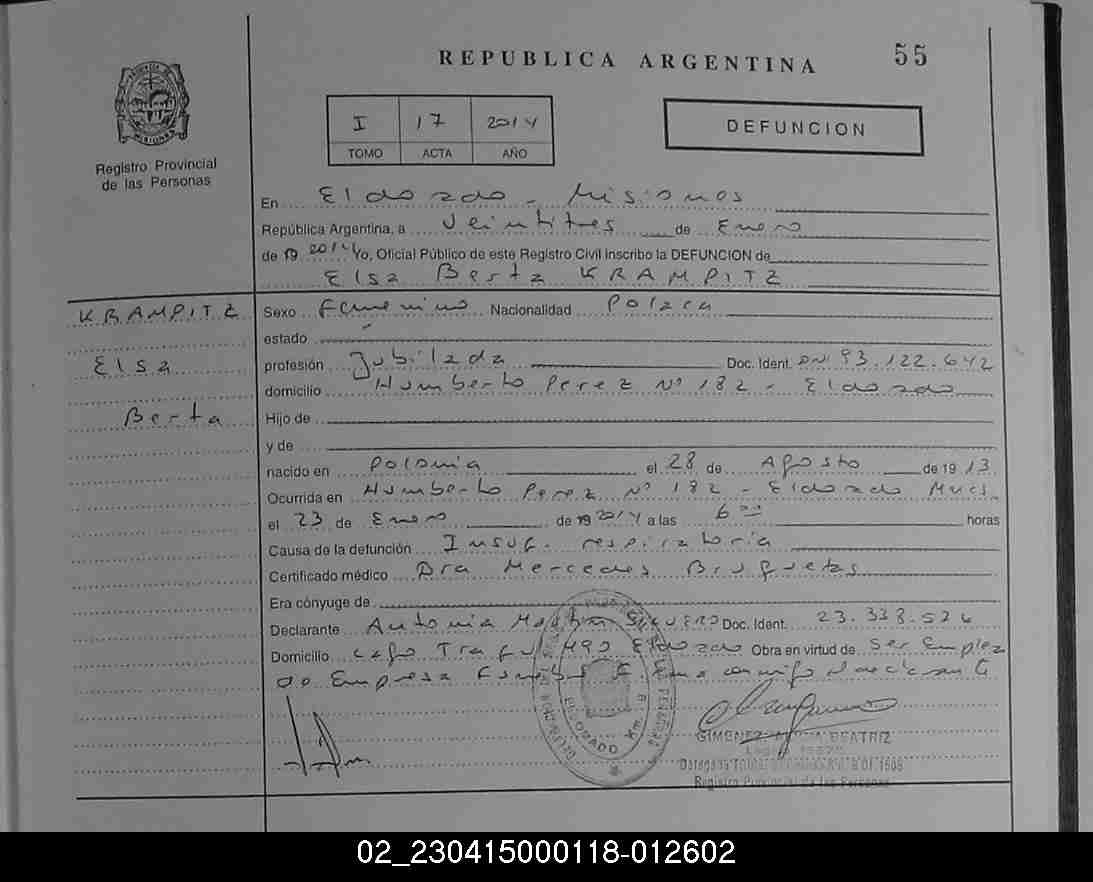 REPUBLICA ARGENTINA
55
PROVINCIA DE MISIONES
Registro Provincial
de las Personas
I 17 2014
TOMO ACTA AÑO
DEFUNCION
En Eldorado - Misiones
República Argentina, a Veintitres de Enero
de 19 2014 Yo, Oficial Público de este Registro Civil inscribo la DEFUNCION de
Elsa Berta KRAMPITZ
KRAMPITZ
Elsa
Berta
Sexo Femenino Nacionalidad Polaca
estado
profesión Jubilada Doc. Ident. DNI 93.122.642
domicilio Humberto Perez Nº 182 - Eldorado
Hijo de
y de
nacido en Polonia el 28 de Agosto de 19 13
Ocurrida en Humberto Perez Nº 182 - Eldorado Mnes.
el 23 de Enero de 19 2014 a las 6 00 horas
Causa de la defunción Insuf. respiratoria
Certificado médico Dra Mercedes Brugue
Era cónyuge de
Declarante Antonia Doc. Ident. 23.338.526
Domicilio Lago Eldorado Obra en virtud de ser Emplea
do Empresa Funebre Firma conmigo el declarante
ELDORADO Km. 8
GIMENEZ BEATRIZ
Registro Provincial de las Personas
02_230415000118-012602